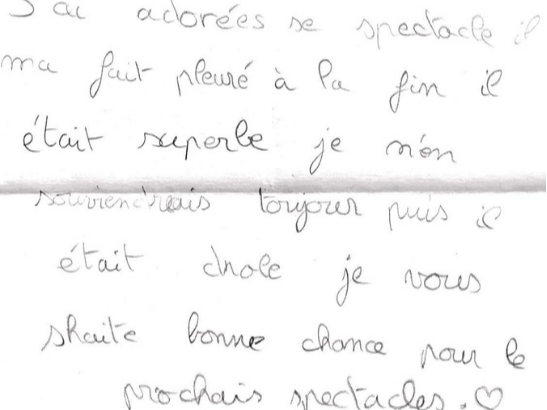 J'ai adorées se spectacle il
ma fait pleuré à la fin il
était superbe je m'en
souviendrais toujour puis il
était drole je vous
shaite bonne chance pour le
prochais spectacles.♡